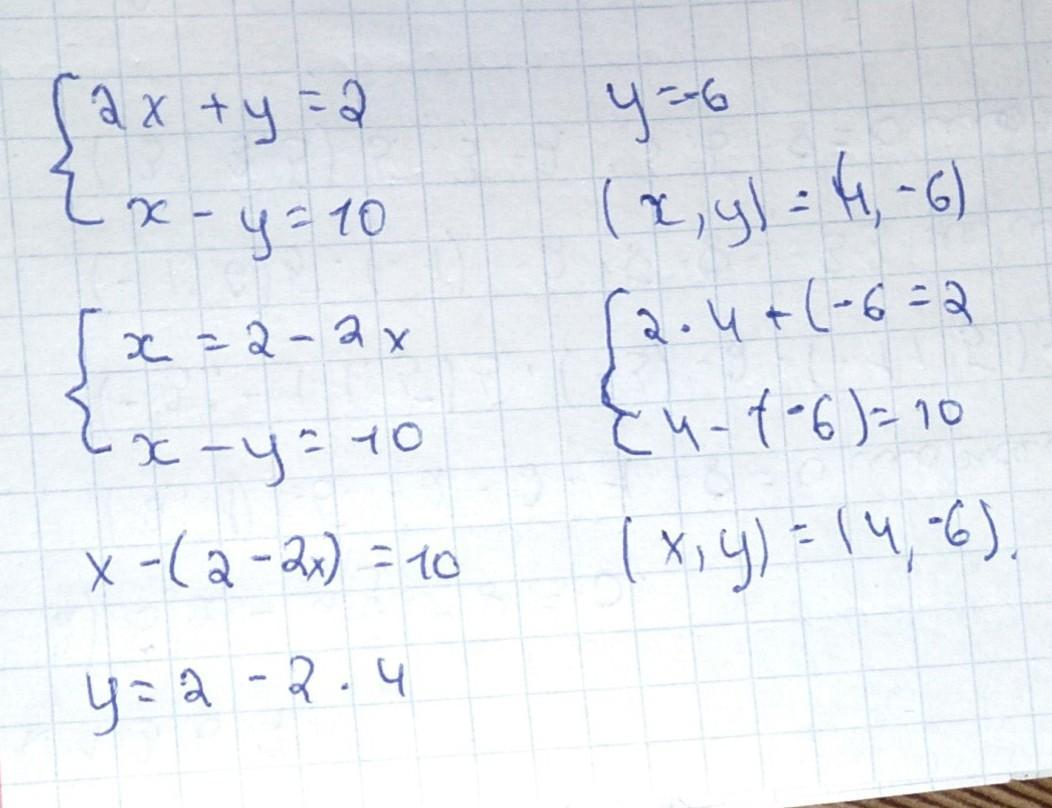 2x + y = 2
x - y = 10
x = 2 - 2x
x - y = 10
x - (2 - 2x) = 10
y = 2 - 2 · 4
y = -6
(x, y) = (4, -6)
2 · 4 + (-6 = 2
4 - (-6) = 10
(x, y) = (4, -6).